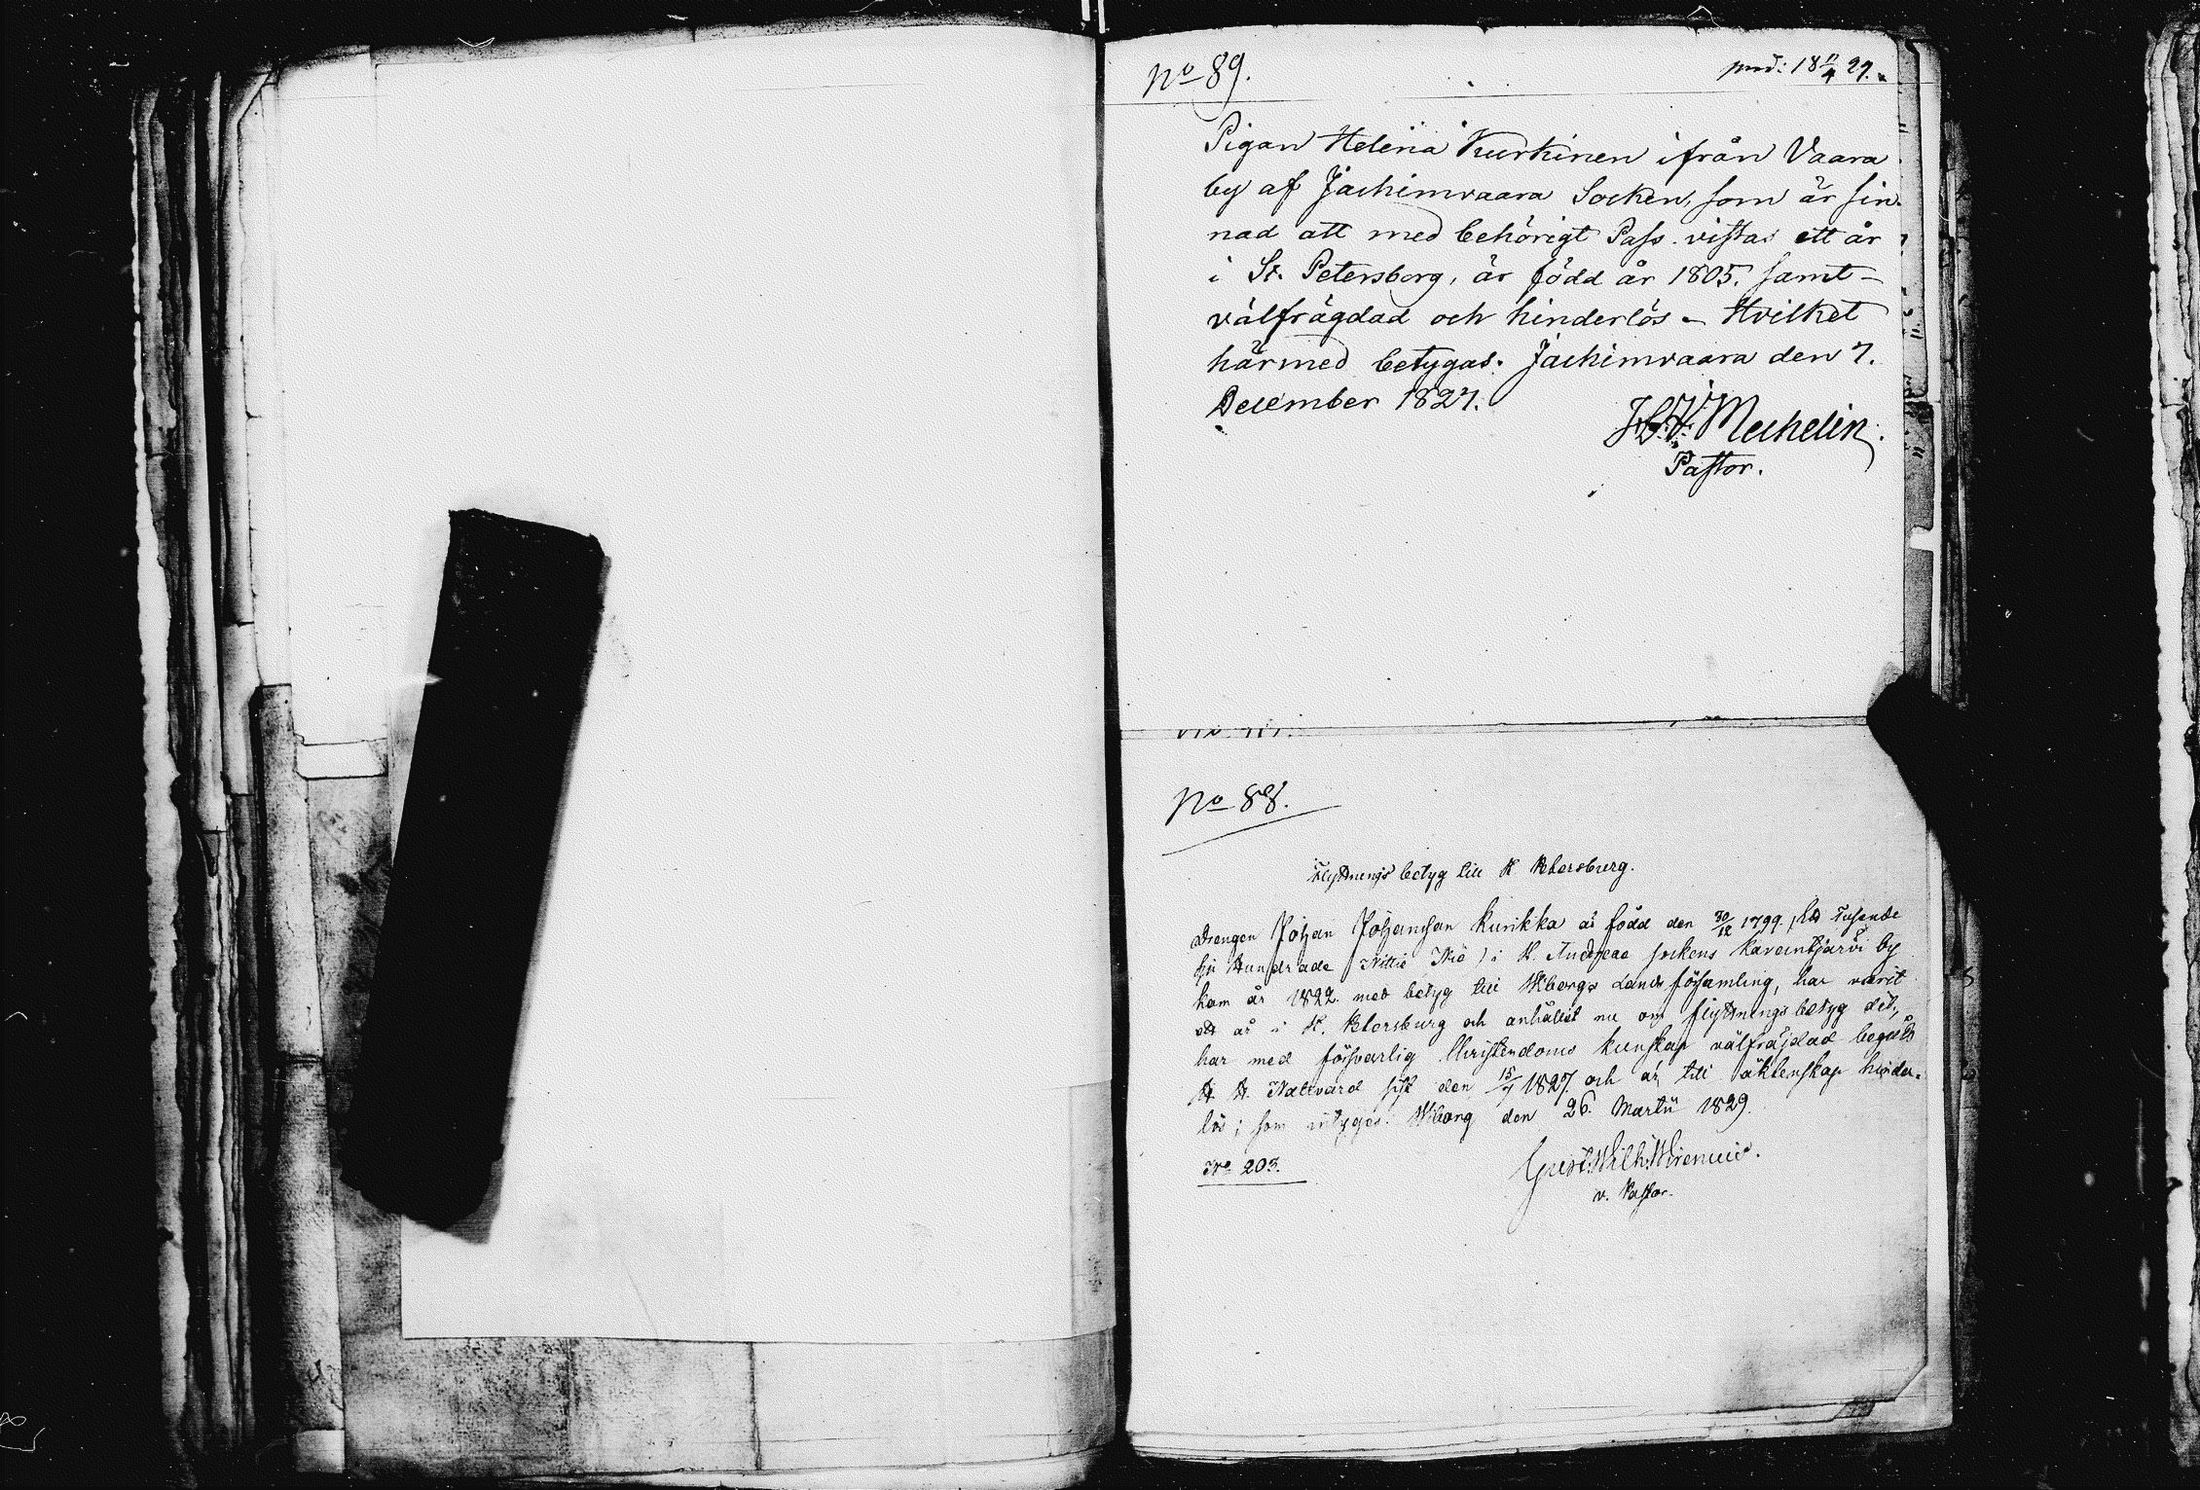 No 89.
prod: 18 11/4 29.
Pigan Helena Kurkinen ifrån Vaara
by af Jachimvaara Socken, som är sin-
nad att med behörigt Pass vistas ett år
i St. Petersborg, är född år 1805. samt
välfrägdad och hinderlös – Hvilket
härmed betygas. Jachimvaara den 7.
December 1827.
Mechelin.
Pastor.
No 88.
Flyttnings betyg till St Petersburg.
Drengen Johan Johansson Kurikka är född den 30/12 1799. (Ett Tusende
sju Hundrade Nittie Nie) i St. Andreae sockens Kaukjärvi by
kom år 1822. med betyg till Wiborgs Lands församling, har varit
ett år i St. Petersburg och anhållit nu om flyttnings betyg dit,
har med försvarlig Christendoms kunskap välfräjdad begått
H. H. Nattvard sist den 15/4 1827. och är till äktenskap hinder-
lös; som intygas. Wiborg den 26. Martii 1829.
No 203.
Gust. Wilh. Wirenius.
v. Pastor.